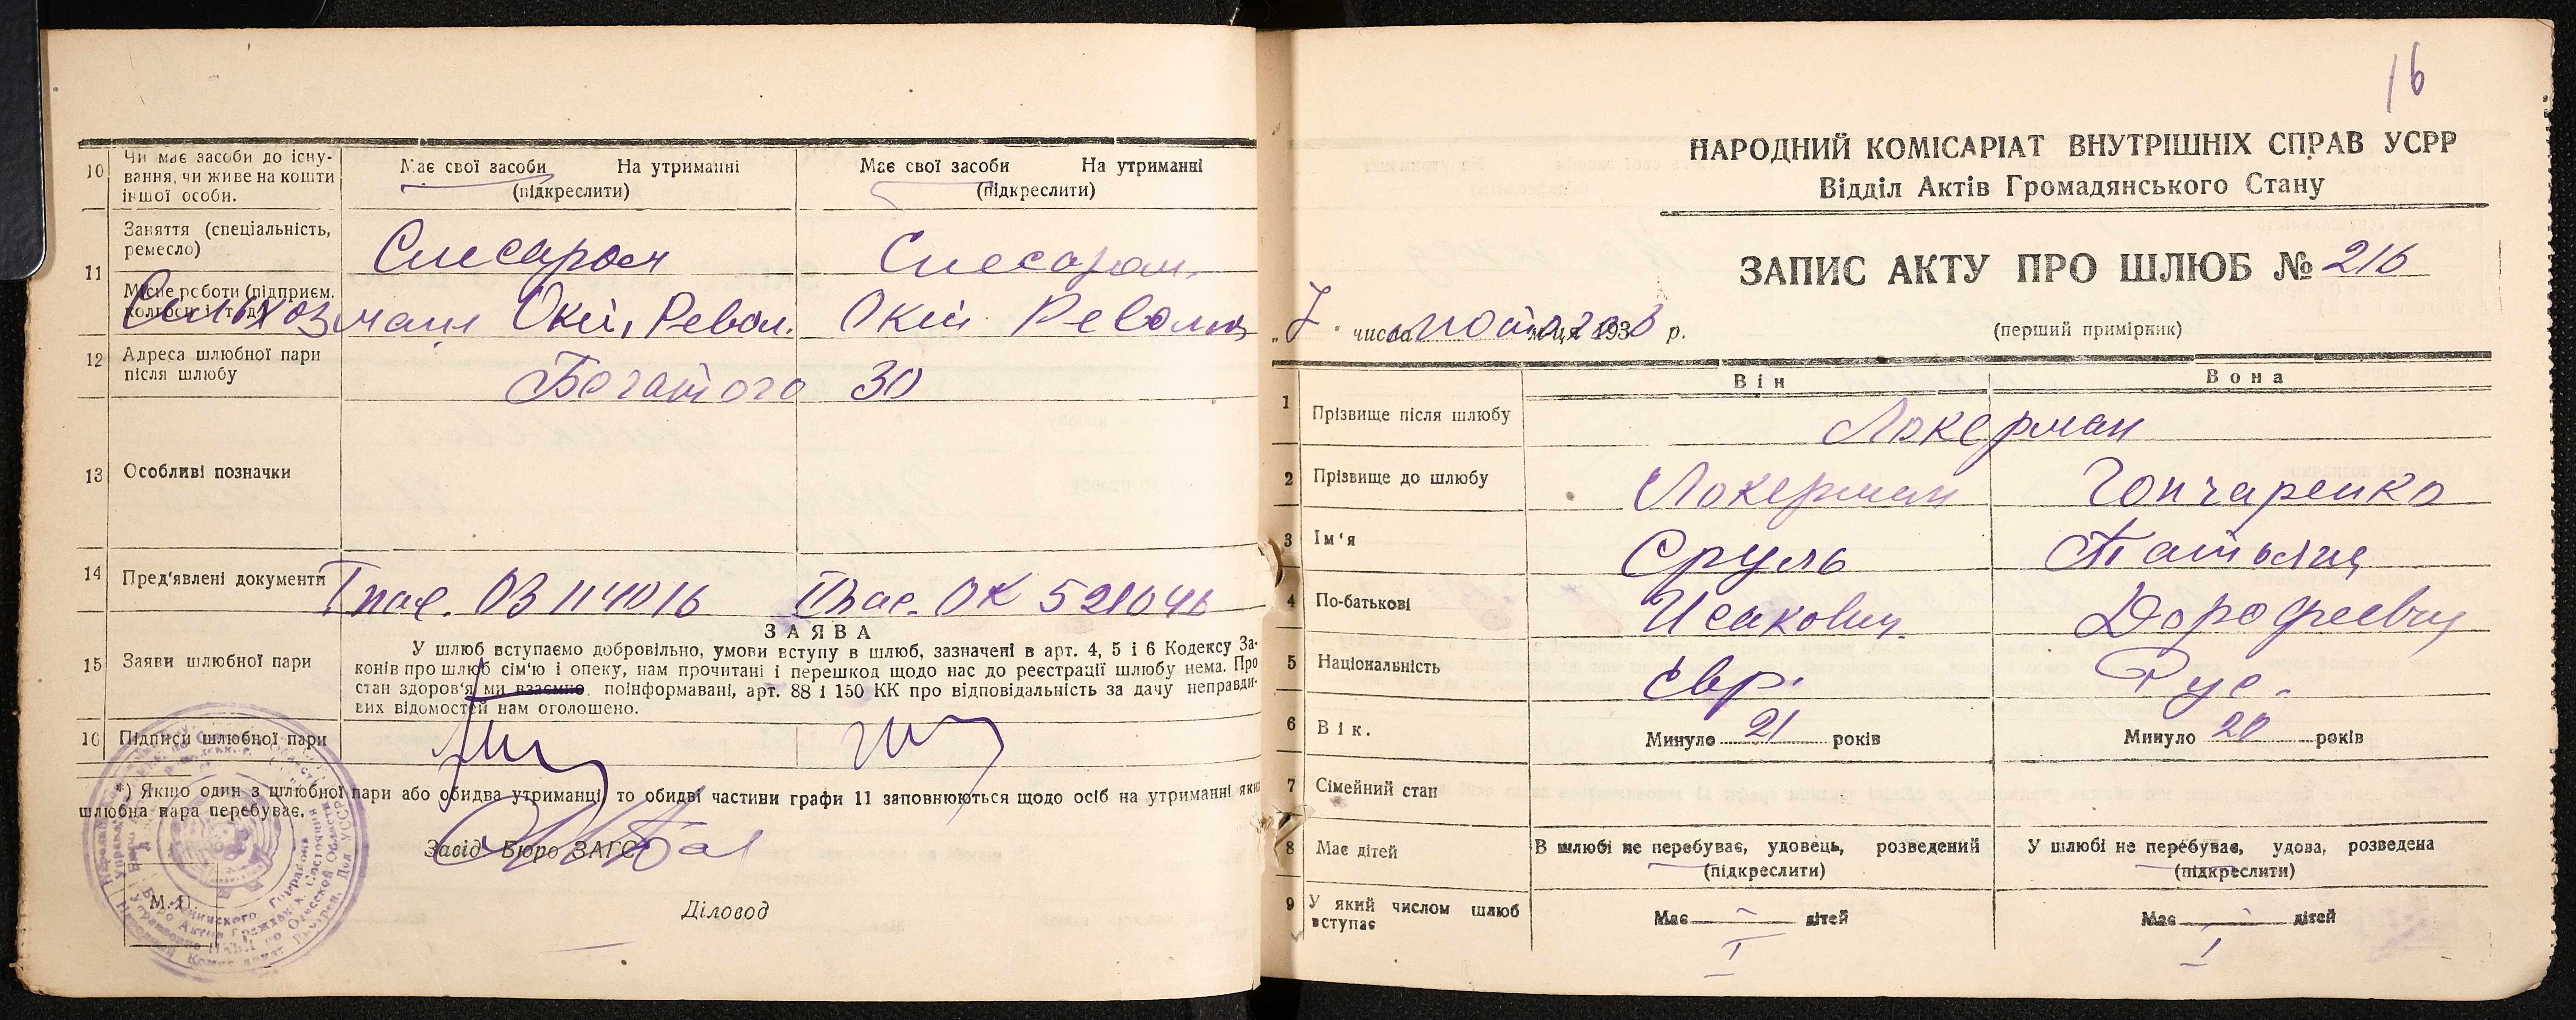 10 Чи має засоби до існу-
вання, чи живе на кошти
іншої особи.
Має свої засоби На утриманні
(підкреслити)
Має свої засоби На утриманні
(підкреслити)
11 Заняття (спеціальність,
ремесло)
Слесаром
Слесаром
Місце роботи (підприєм.
колгосп і т. д.)
Сельхозмаш Окт. Револ.
Окт Револю
12 Адреса шлюбної пари
після шлюбу
Богатого 30
13 Особливі позначки
14 Пред'явлені документи
пас. ОВ 114016 Пас. ОК
15 Заяви шлюбної пари
ЗАЯВА
У шлюб вступаємо добровільно, умови вступу в шлюб, зазначені в арт. 4, 5 і 6 Кодексу За-
конів про шлюб сім'ю і опеку, нам прочитані і перешкод щодо нас до реєстрації шлюбу нема. Про
стан здоров'я ми взаємно поінформавані, арт. 88 і 150 КК про відповідальність за дачу неправди-
вих відомостей нам оголошено.
16 Підписи шлюбної пари
*) Якщо один з шлюбної пари або обидва утриманці, то обидві частини графи 11 заповнюються щодо осіб на утриманні яких
шлюбна пара перебуває.
Завід Бюро ЗАГС
М. П.
Діловод
16
НАРОДНИЙ КОМІСАРІАТ ВНУТРІШНІХ СПРАВ УСРР
Відділ Актів Громадянського Стану
ЗАПИС АКТУ ПРО ШЛЮБ № 216
„7" числа лютого м-ця 1938 р.
(перший примірник)
Він Вона
1 Прізвище після шлюбу Локерман
2 Прізвище до шлюбу Локерман Гончаренко
3 Ім'я Сруль Татьяна
4 По-батькові Исакович Дорофеевна
5 Національність Євр. Рус.
6 Вік. Минуло 21 років Минуло 20 років
7 Сімейний стан
8 Має дітей
В шлюбі не перебуває, удовець, розведений
(підкреслити)
У шлюбі не перебуває, удова, розведена
(підкреслити)
9 У який числом шлюб
вступає
Має - дітей
I
Має - дітей
I